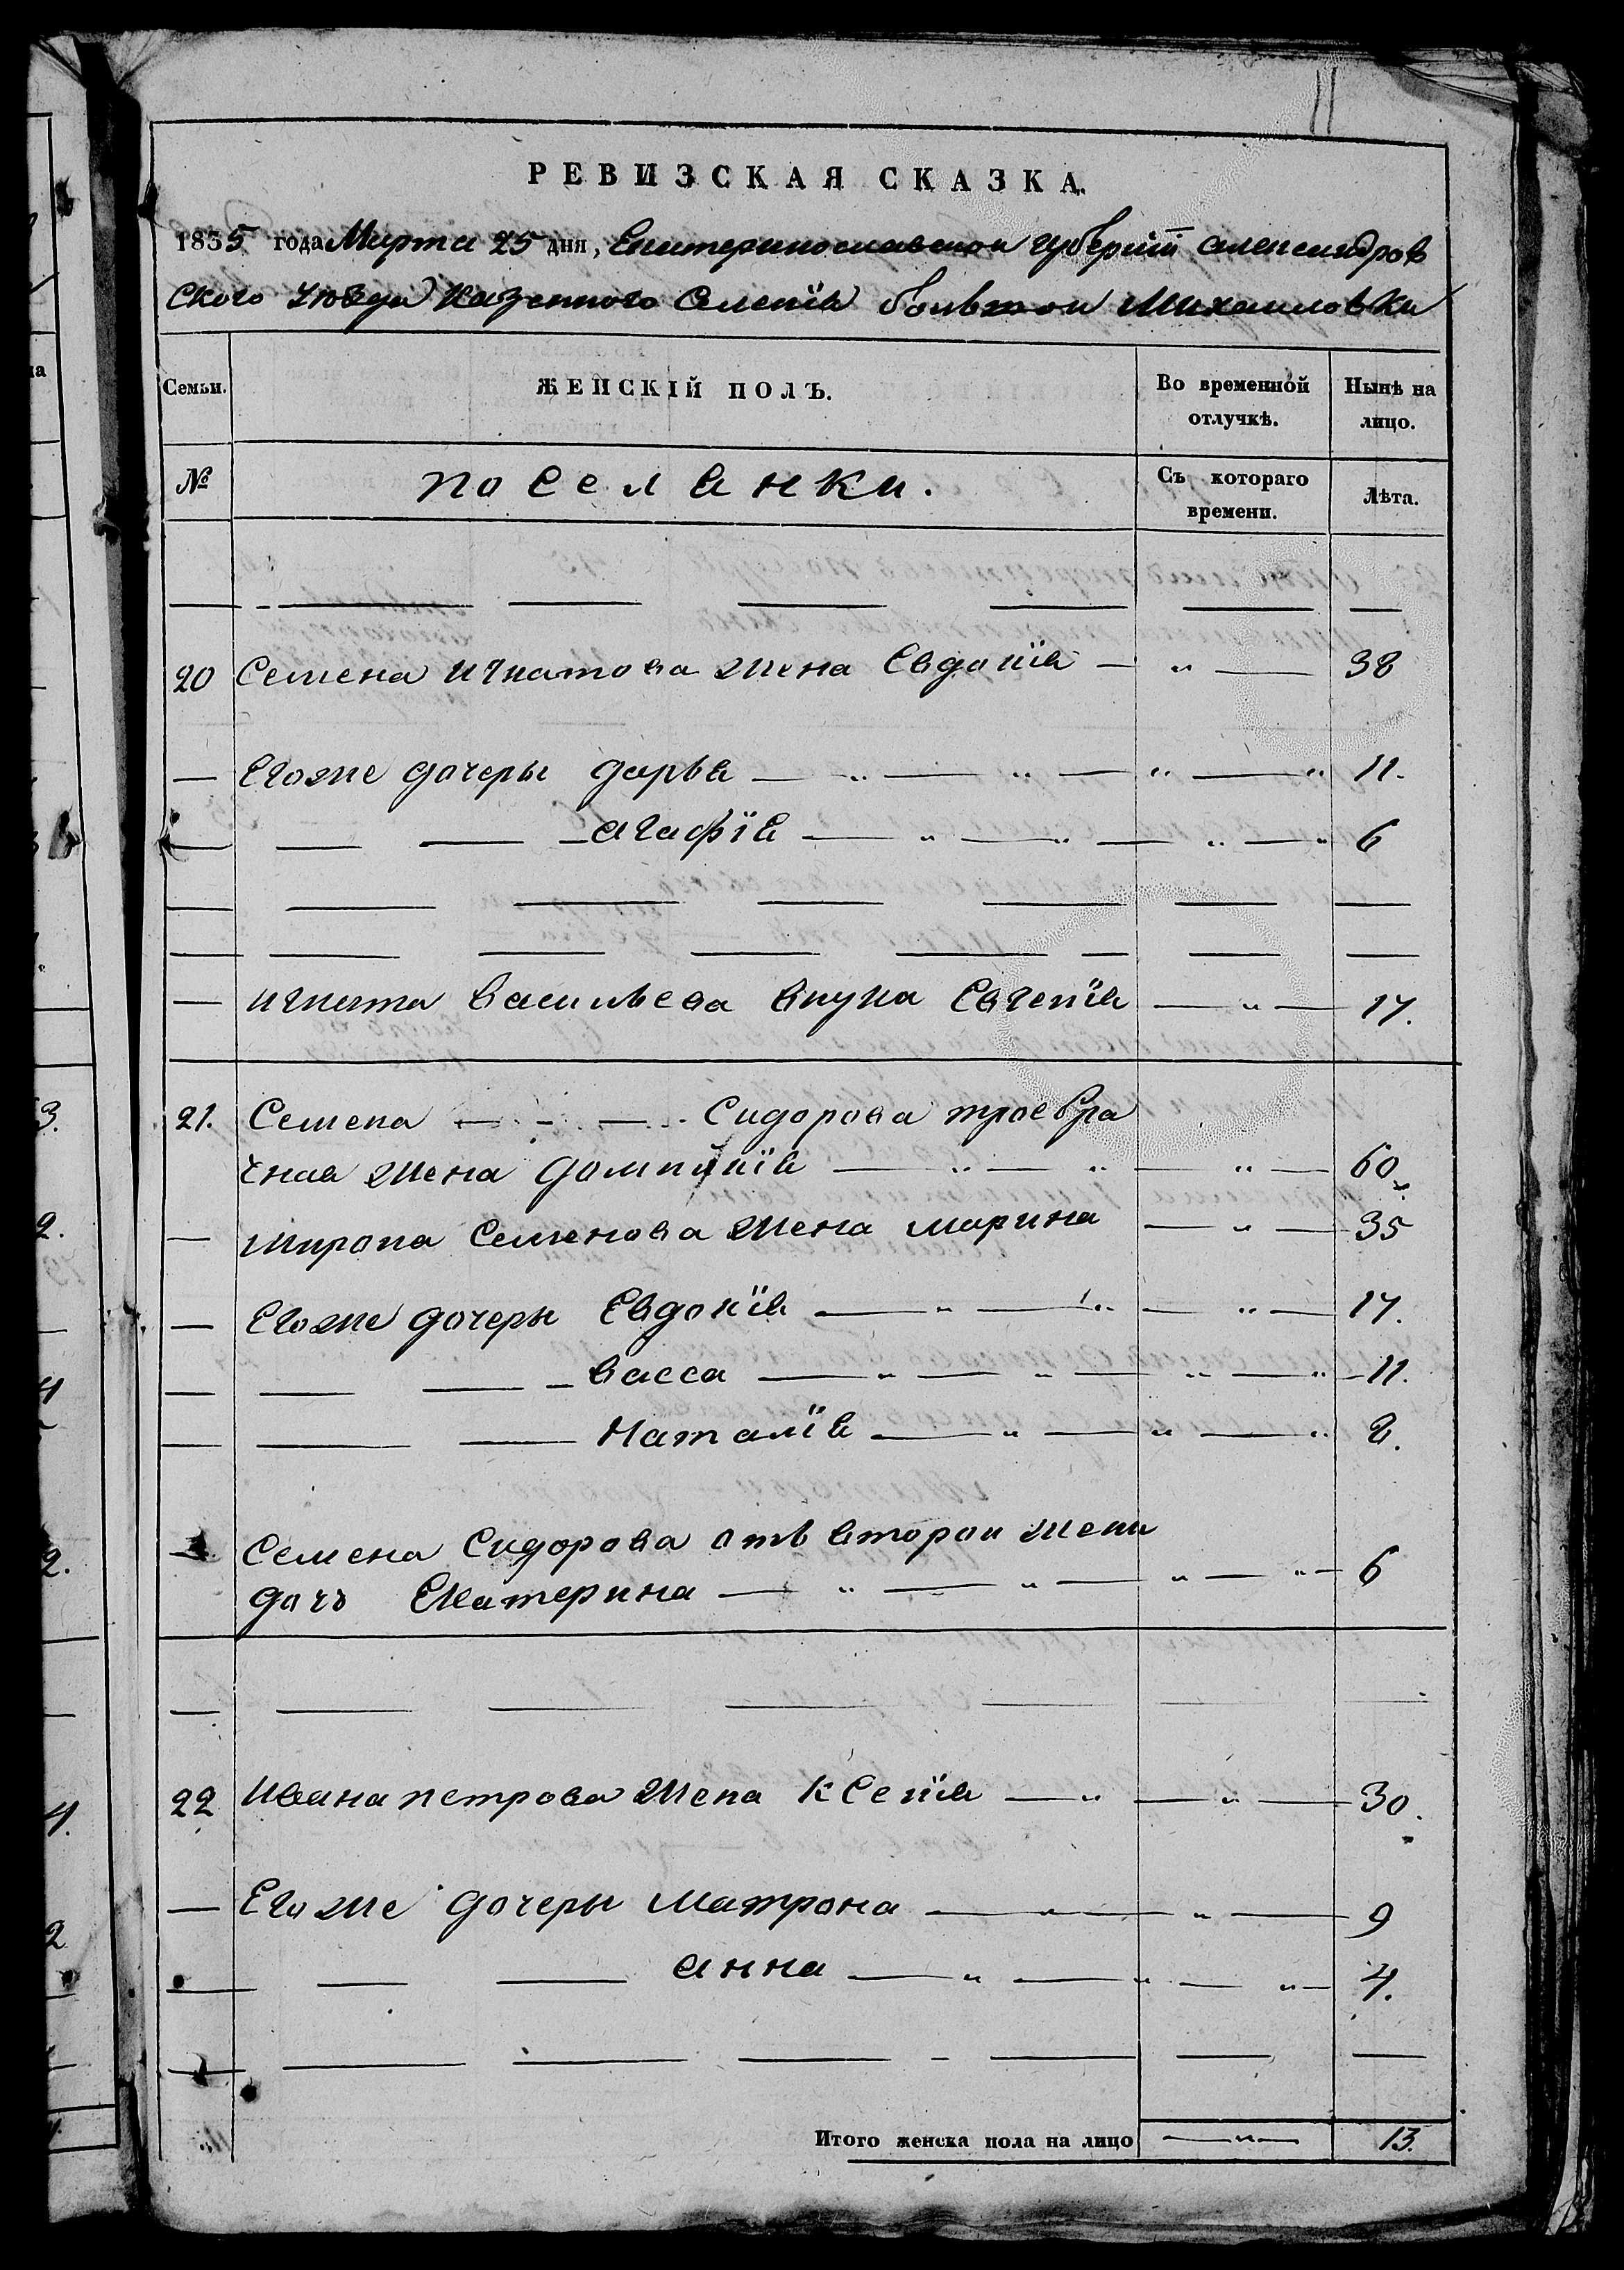 11
РЕВИЗСКАЯ СКАЗКА.
1835 года Марта 25 дня, Екатеринославской губернїи александров
ского уѣзда Казенного Селенїя большой Михаиловки
Семьи. ЖЕНСКІЙ ПОЛЪ. Во временной отлучкѣ. Нынѣ на лицо.
№ поселянки. Съ котораго времени. Лѣта.
20 Семена игнатова жена Евдокїя — " — 38
— Егоже дочеры дарья — " — " — " — " 11.
— — — агафїя — " — " — " — " 6
— игната васильева внука Евгенїя — " — 17.
21. Семена — - — Сидорова троебра
чная жена домникїя — " — " — " — 60
— мирона Семенова жена марина — " — 35
— Егоже дочеры Евдокїя — " — " — " — 17.
— — — васса — " — " — " — " 11.
— — — Наталїя — " — " — " 2.
— Семена Сидорова отъ второи жени
дочъ Екатерина — " — " — " — " — 6
22 Ивана петрова жена Ксенїя — " — " — 30.
— Егоже дочеры матрона — " — " — 9
— — — анна — " — " — " — 4.
Итого женска пола на лицо — " — 13.
3.
2.
4
2.
4.
2